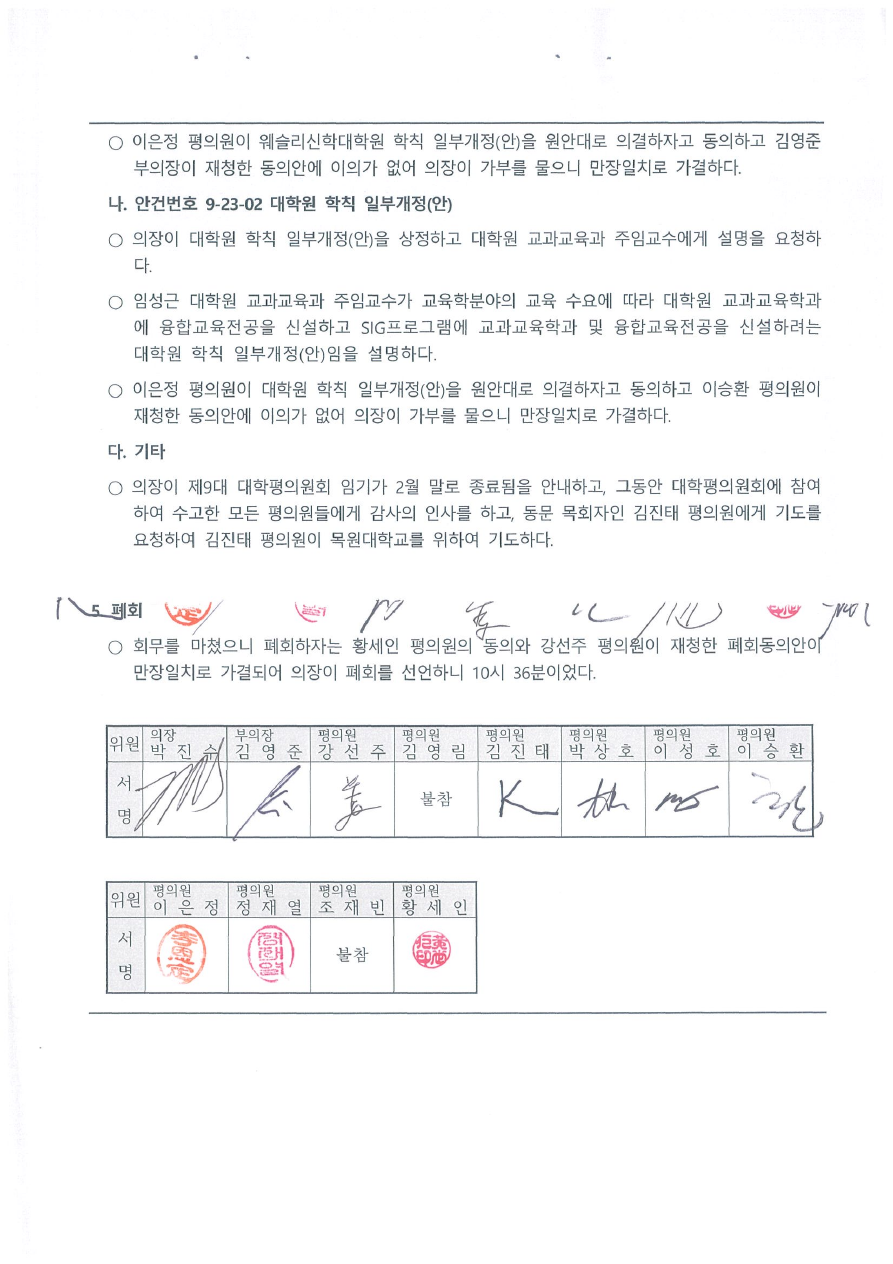 ○ 이은정 평의원이 웨슬리신학대학원 학칙 일부개정(안)을 원안대로 의결하자고 동의하고 김영준
부의장이 재청한 동의안에 이의가 없어 의장이 가부를 물으니 만장일치로 가결하다.
나. 안건번호 9-23-02 대학원 학칙 일부개정(안)
○ 의장이 대학원 학칙 일부개정(안)을 상정하고 대학원 교과교육과 주임교수에게 설명을 요청하
다.
○ 임성근 대학원 교과교육과 주임교수가 교육학분야의 교육 수요에 따라 대학원 교과교육학과
에 융합교육전공을 신설하고 SIG프로그램에 교과교육학과 및 융합교육전공을 신설하려는
대학원 학칙 일부개정(안)임을 설명하다.
○ 이은정 평의원이 대학원 학칙 일부개정(안)을 원안대로 의결하자고 동의하고 이승환 평의원이
재청한 동의안에 이의가 없어 의장이 가부를 물으니 만장일치로 가결하다.
다. 기타
○ 의장이 제9대 대학평의원회 임기가 2월 말로 종료됨을 안내하고, 그동안 대학평의원회에 참여
하여 수고한 모든 평의원들에게 감사의 인사를 하고, 동문 목회자인 김진태 평의원에게 기도를
요청하여 김진태 평의원이 목원대학교를 위하여 기도하다.
5. 폐회
○ 회무를 마쳤으니 폐회하자는 황세인 평의원의 동의와 강선주 평의원이 재청한 폐회동의안이
만장일치로 가결되어 의장이 폐회를 선언하니 10시 36분이었다.
위원 의장 부의장 평의원 평의원 평의원 평의원 평의원 평의원
박진 김영준 강선주 김영림 김진태 박상호 이성호 이승환
서명 불참
위원 평의원 평의원 평의원 평의원
이은정 정재열 조재빈 황세인
서명 불참